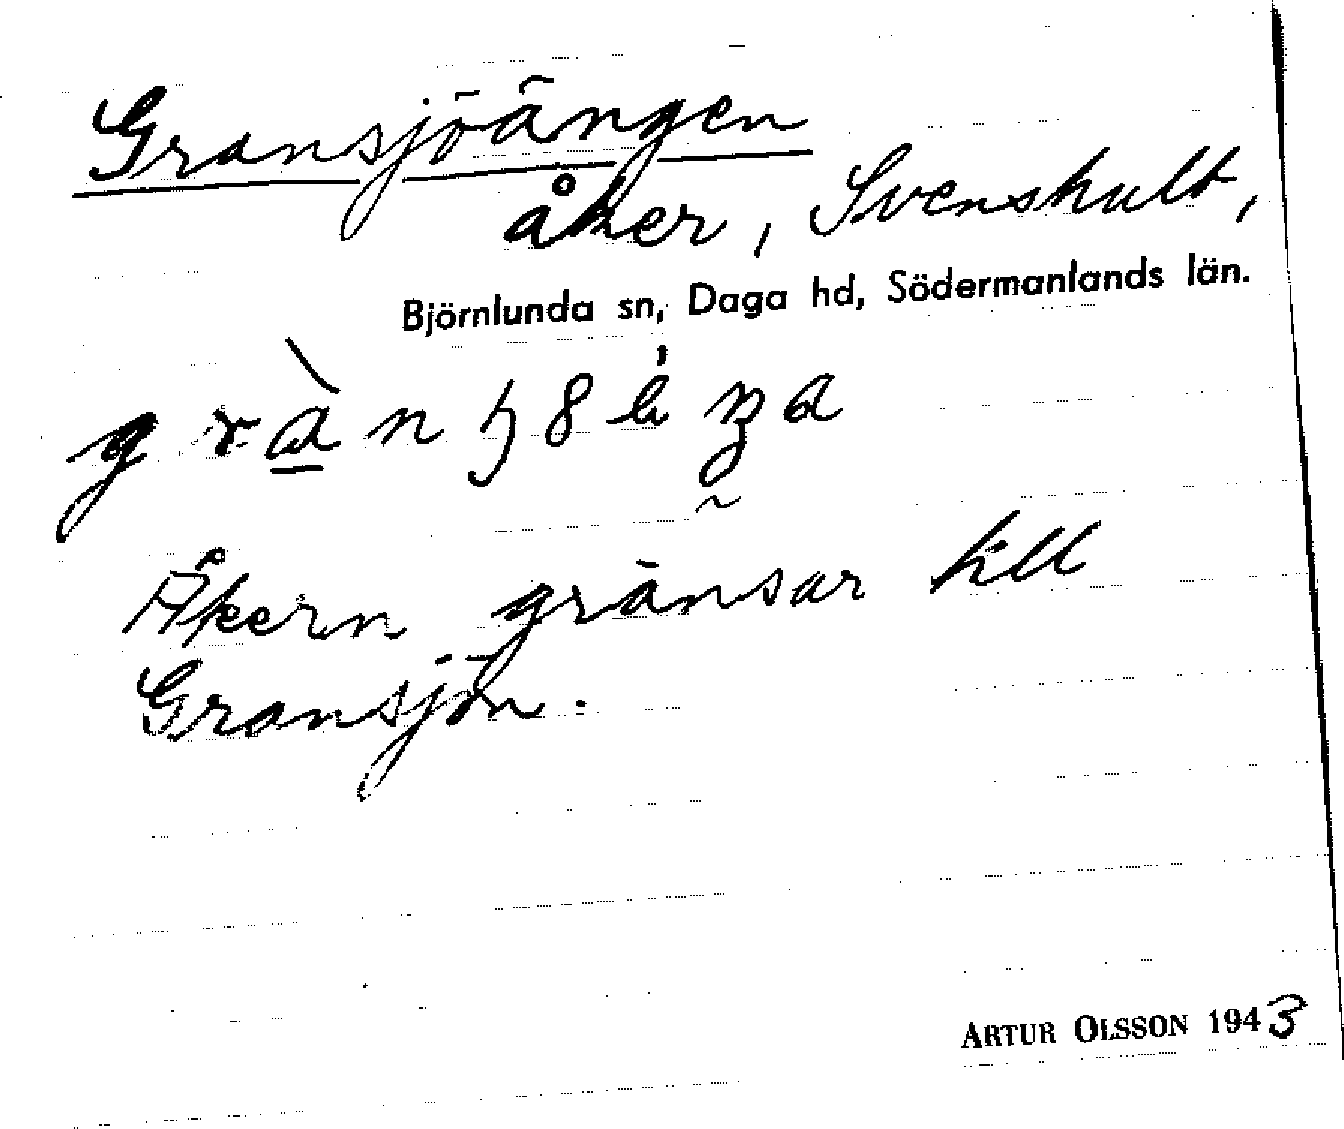 Gransjöängen
åker, Svenshult,
Björnlunda sn, Daga hd, Södermanlands län.
Åkern gränsar till
Gransjön.
ARTUR OLSSON 1943